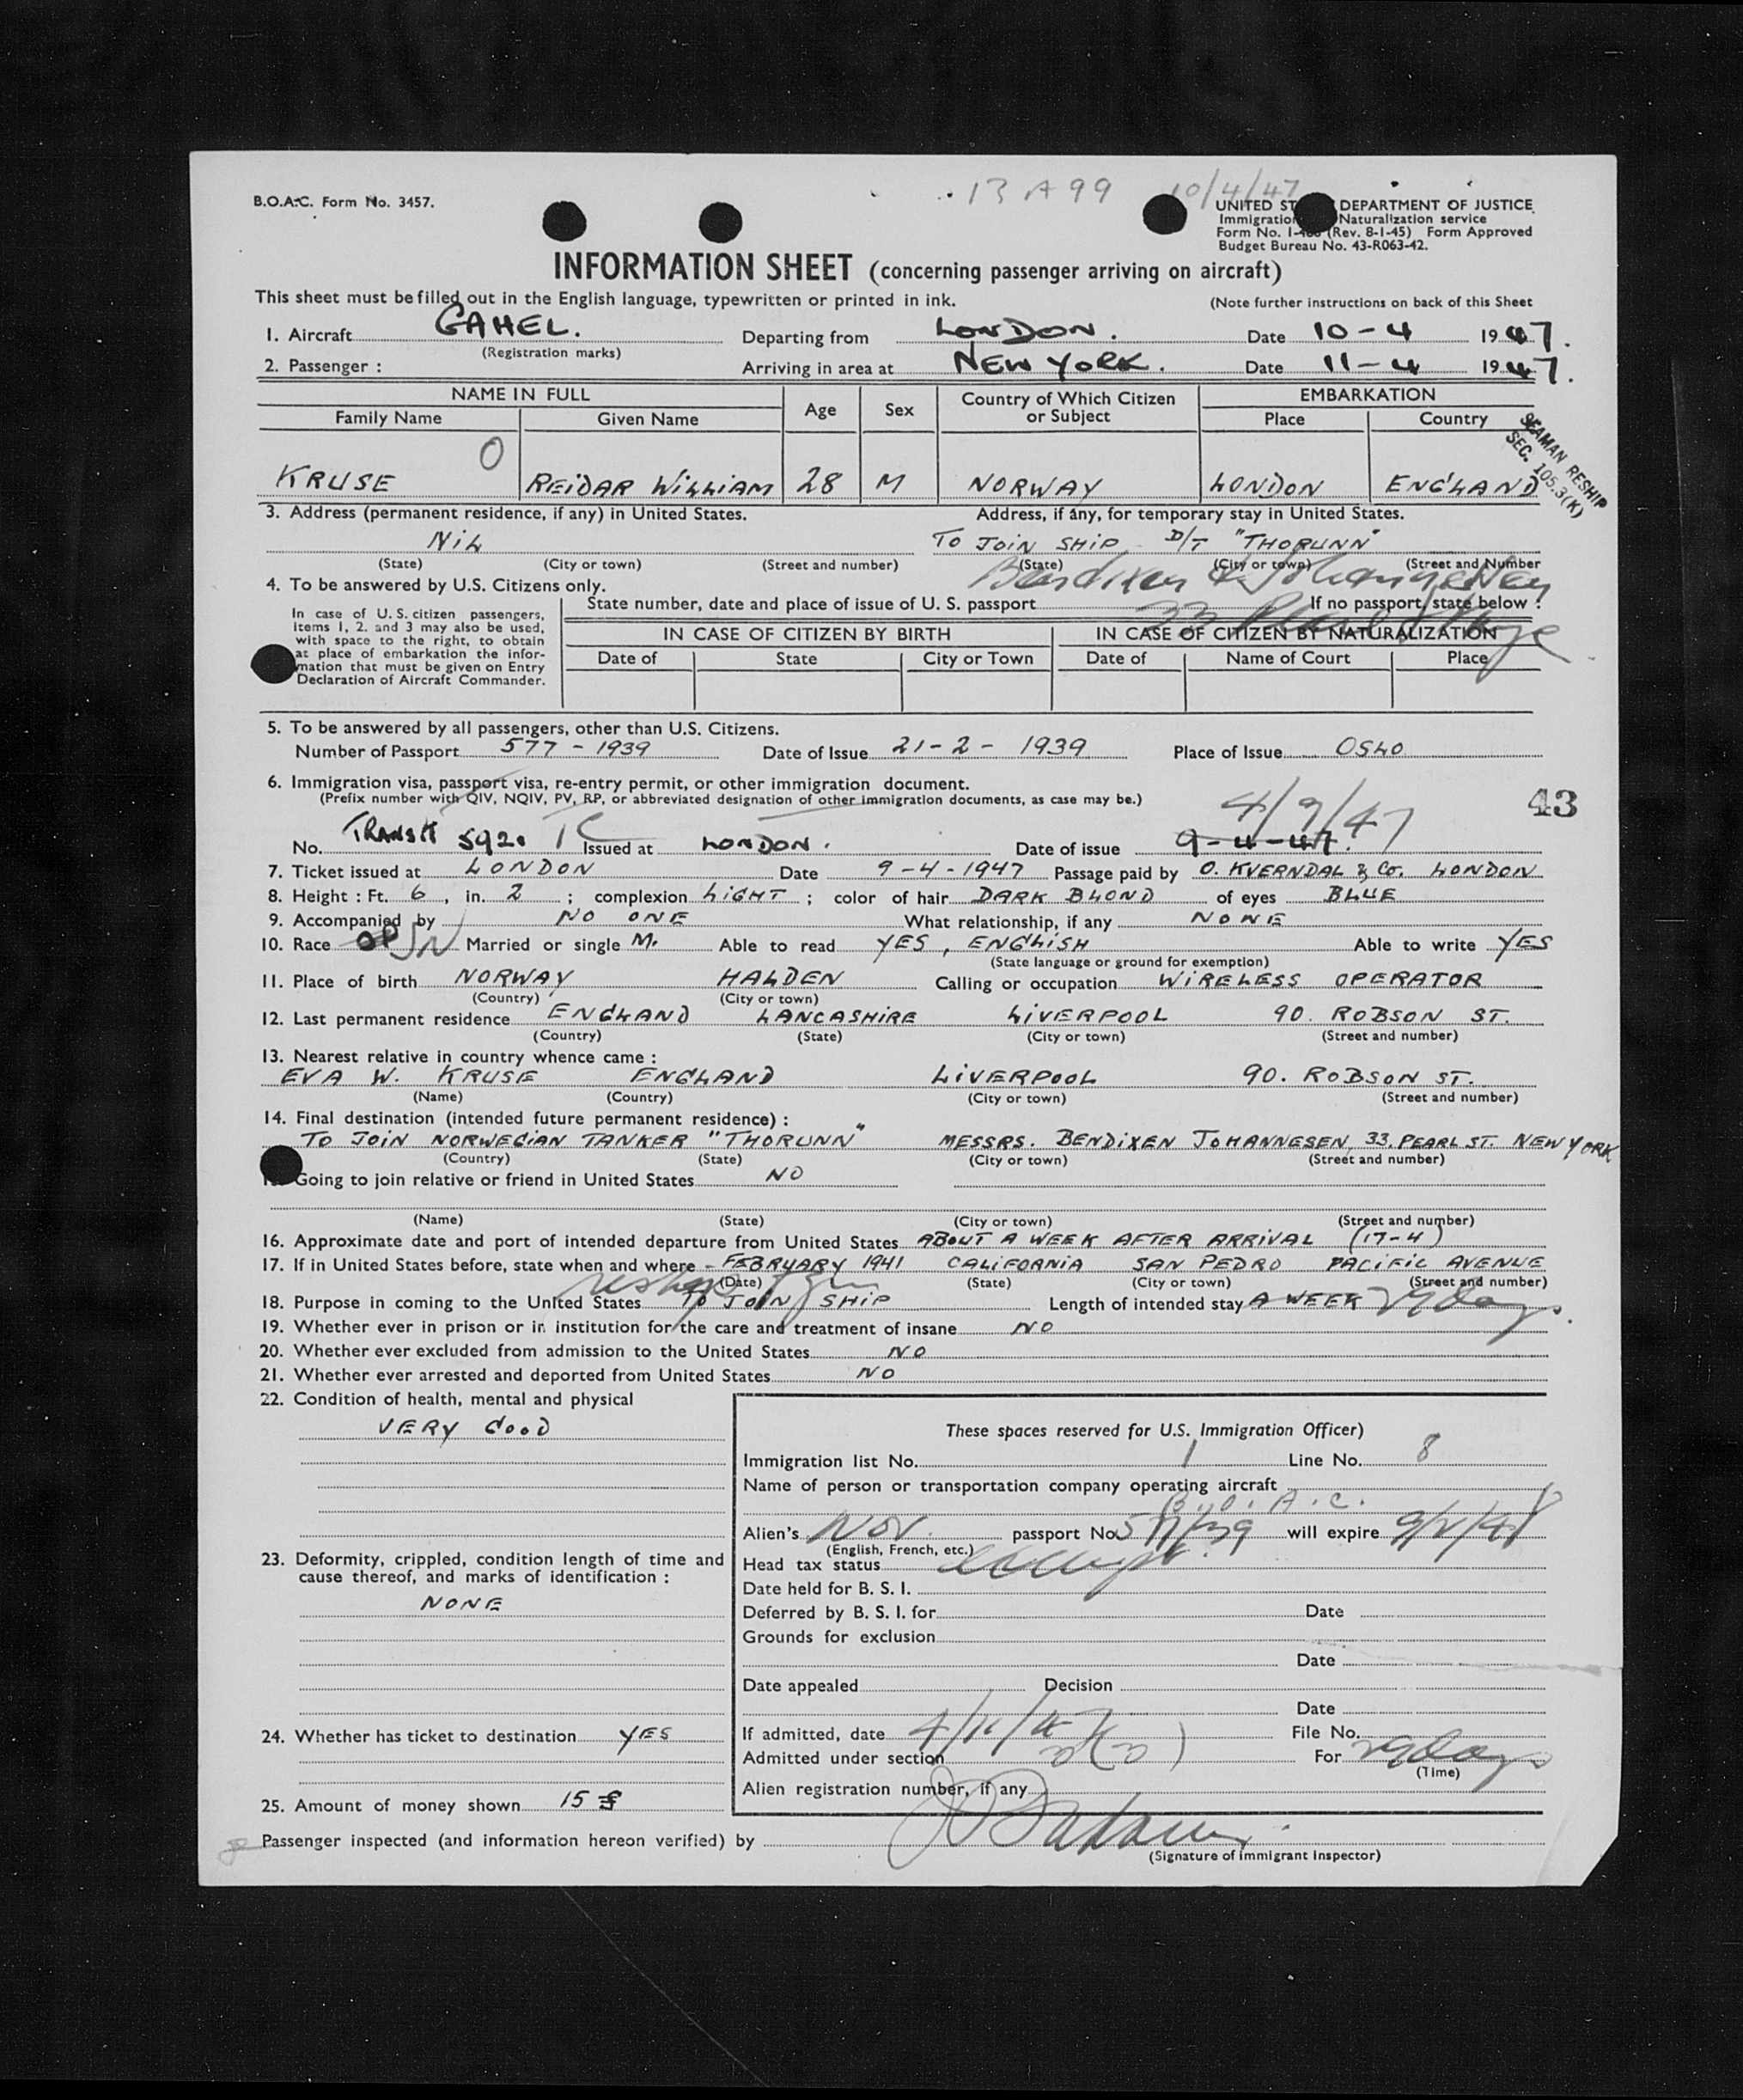 13 A 99 10/4/47
B.O.A.C. Form No. 3457.
UNITED ST DEPARTMENT OF JUSTICE
Immigratio Naturalization service
Form No. I- (Rev. 8-1-45) Form Approved
Budget Bureau No. 43-R063-42.
INFORMATION SHEET (concerning passenger arriving on aircraft)
This sheet must be filled out in the English language, typewritten or printed in ink. (Note further instructions on back of this Sheet
1. Aircraft GAHEL. Departing from LONDON. Date 10-4 1947.
(Registration marks)
2. Passenger : Arriving in area at NEW YORK. Date 11-4 1947.
NAME IN FULL Age Sex Country of Which Citizen or Subject EMBARKATION
Family Name Given Name Place Country
SEAMAN RESHIP
SEC. 105.3(K)
0
KRUSE REIDAR WILLIAM 28 M NORWAY LONDON ENGLAND
3. Address (permanent residence, if any) in United States. Address, if any, for temporary stay in United States.
NIL TO JOIN SHIP D/T "THORUNN"
(State) (City or town) (Street and number) (State) (City or town) (Street and Number
Bendixen & Johannessen
33 Pearl St
4. To be answered by U.S. Citizens only.
In case of U.S. citizen passengers,
items 1, 2. and 3 may also be used,
with space to the right, to obtain
at place of embarkation the infor-
mation that must be given on Entry
Declaration of Aircraft Commander.
State number, date and place of issue of U. S. passport If no passport, state below :
IN CASE OF CITIZEN BY BIRTH IN CASE OF CITIZEN BY NATURALIZATION
Date of State City or Town Date of Name of Court Place
5. To be answered by all passengers, other than U.S. Citizens.
Number of Passport 577 - 1939 Date of Issue 21-2- 1939 Place of Issue OSLO
6. Immigration visa, passport visa, re-entry permit, or other immigration document.
(Prefix number with QIV, NQIV, PV, RP, or abbreviated designation of other immigration documents, as case may be.)
4/9/47 43
No. TRANSIT 592. TC Issued at LONDON. Date of issue 9-4-47.
7. Ticket issued at LONDON Date 9-4-1947 Passage paid by O. KVERNDAL & Co. LONDON
8. Height : Ft. 6, in. 2 ; complexion LIGHT ; color of hair DARK BLOND of eyes BLUE
9. Accompanied by NO ONE What relationship, if any NONE
10. Race Married or single M. Able to read YES, ENGLISH Able to write YES
(State language or ground for exemption)
11. Place of birth NORWAY HALDEN Calling or occupation WIRELESS OPERATOR
(Country) (City or town)
12. Last permanent residence ENGLAND LANCASHIRE LIVERPOOL 90. ROBSON ST.
(Country) (State) (City or town) (Street and number)
13. Nearest relative in country whence came :
EVA W. KRUSE ENGLAND LIVERPOOL 90. ROBSON ST.
(Name) (Country) (City or town) (Street and number)
14. Final destination (intended future permanent residence) :
TO JOIN NORWEGIAN TANKER "THORUNN" MESSRS. BENDIXEN JOHANNESEN, 33. PEARL ST. NEW YORK
(Country) (State) (City or town) (Street and number)
Going to join relative or friend in United States NO
(Name) (State) (City or town) (Street and number)
16. Approximate date and port of intended departure from United States ABOUT A WEEK AFTER ARRIVAL (17-4)
17. If in United States before, state when and where - FEBRUARY 1941 CALIFORNIA SAN PEDRO PACIFIC AVENUE
(Date) (State) (City or town) (Street and number)
18. Purpose in coming to the United States TO JOIN SHIP Length of intended stay A WEEK 29 days.
19. Whether ever in prison or in institution for the care and treatment of insane NO
20. Whether ever excluded from admission to the United States NO
21. Whether ever arrested and deported from United States NO
22. Condition of health, mental and physical
VERY GOOD
23. Deformity, crippled, condition length of time and
cause thereof, and marks of identification :
NONE
24. Whether has ticket to destination YES
25. Amount of money shown 15 £
These spaces reserved for U.S. Immigration Officer)
Immigration list No. 1 Line No. 8
Name of person or transportation company operating aircraft
B.O.A.C.
Alien's NOR. passport No 577/39 will expire 9/2/48
(English, French, etc.)
Head tax status exempt
Date held for B. S. I.
Deferred by B. S. I. for Date
Grounds for exclusion
Date
Date appealed Decision
Date
If admitted, date 4/11/47 File No.
Admitted under section For 29 days
(Time)
Alien registration number, if any
Passenger inspected (and information hereon verified) by
(Signature of Immigrant Inspector)